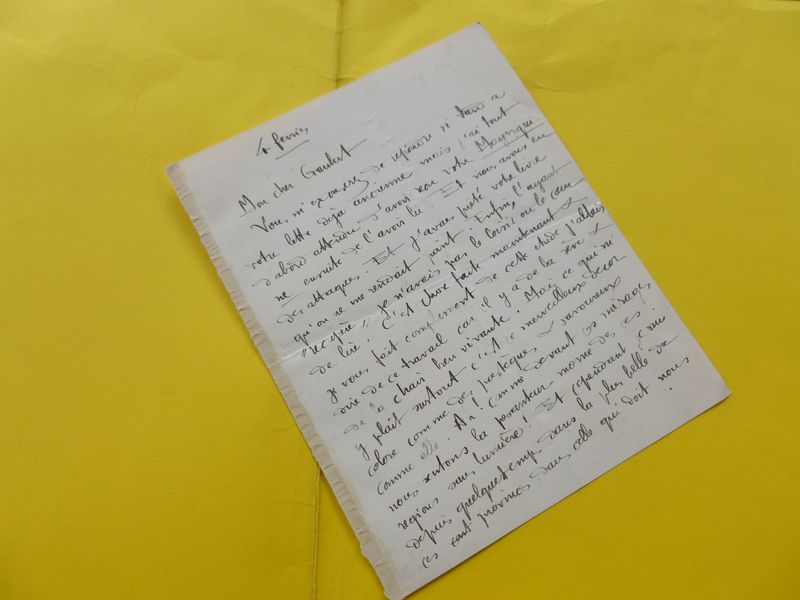 4 fevrier
Mon cher Gaudert
Vous m'excuserez de repondre si tard a
votre lettre deja ancienne mais j'ai tout
d'abord attendu d'avoir reçu votre
ne ensuite de l'avoir lu. Et nous avons eu
des attaques. Et j'avais preté votre livre
qu'on ne me rendait point. Enfin, l'ayant
je n'avais pas le loisir ou le cœur
de lire. C'est chose faite maintenant &
je vous fais compliment de cette etude j'allais
dire de ce travail car il y a de la sève &
de la chair bien vivante. Mais ce qui m'
y plait surtout c'est ce merveilleux decor
coloré comme des pasteques & savoureux
comme elle. Ah! Comme devant ces mirages
nous sentons la pesanteur morne de ces
regions sans lumière! Et cependant je suis
depuis quelque temps dans la plus belle de
ces provinces dans celle qui doit nous